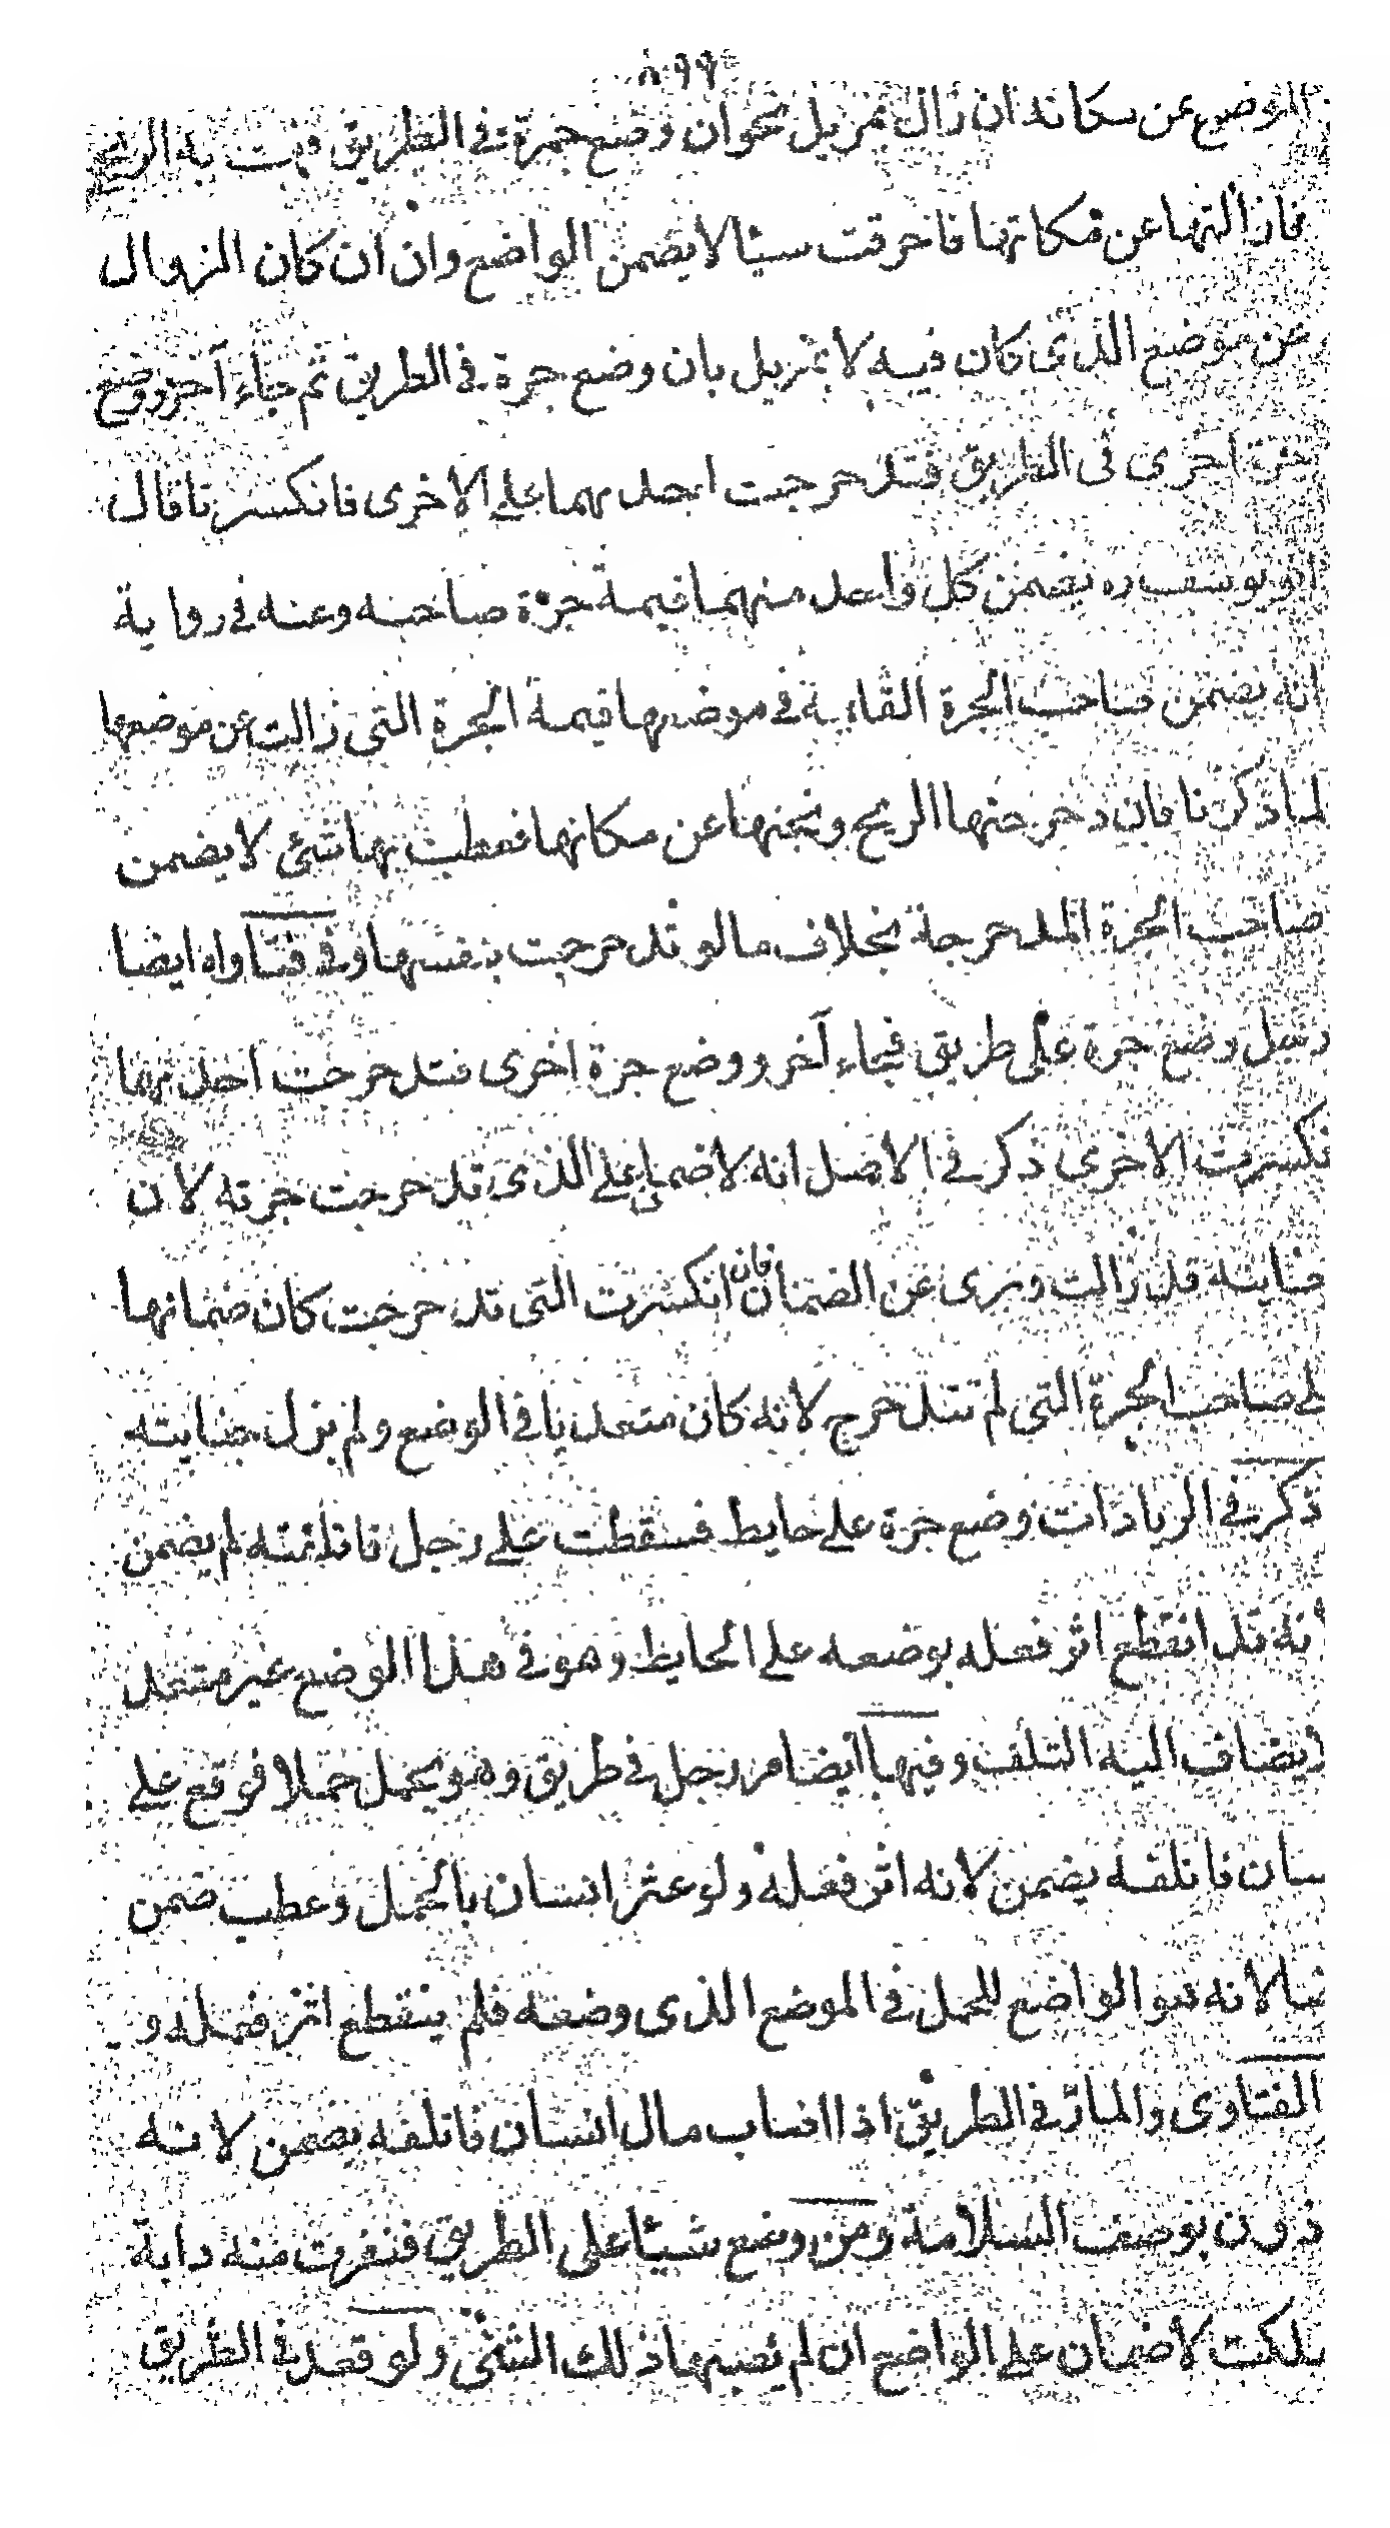 الموضع عن مكانه ان زال بمزيل نحو ان وضع جمرة في الطريق فهبت به الريح
فازالتها عن مكانها فاحرقت سيئا لا يضمن الواضع وان ان كان الزوال
عن موضع الذي كان فيه لا بمزيل بان وضع جرة في الطريق ثم جاء آخر ووضع
جرة اخرى في الطريق فتدحرجت احديهما على الاخرى فانكسرتا قال
ابو يوسف ره يضمن كل واحد منهما قيمة جرة صاحبه وعنه في رواية
انه يضمن صاحب الجرة القايمة في موضعها قيمة الجرة التي زالت عن موضعها
لما ذكرنا فان دحرجتها الريح ونجتها عن مكانها فعطبت بها شئ لا يضمن
صاحب الجرة المدحرجة بخلاف ما لو تدحرجت بنفسها وفي فتاواه ايضا
رجل وضع جرة على طريق فجاء آخر ووضع جرة اخرى فتدحرجت احديهما
فكسرت الاخرى ذكر في الاصل انه لا ضمان على الذي تدحرجت جرته لان
جنايته قد زالت وبرى عن الضمان فان انكسرت التي تدحرجت كان ضمانها
على صاحب الجرة التي لم تتدحرج لانه كان متعديا في الوضع ولم يزل جنايته
ذكر في الزيادات وضع جرة على حايط فسقطت على رجل فاتلفته لم يضمن
انه قد انقطع اثر فعله بوضعه على الحايط وهو في هذا الوضع غير متعد
يضاف اليه التلف وفيها ايضا مر رجل في طريق وهو يحمل حملا فوقع على
سان فاتلفه يضمن لانه اثر فعله ولو عثر انسان بالحمل وعطب ضمن
ضا لانه هو الواضع للحمل في الموضع الذي وضعه فلم ينقطع اثر فعله و
الفتاوى والمار في الطريق اذا اصاب مال انسان فاتلفه يضمن لانه
ذون بوصف السلامة ومن وضع شيئا على الطريق فنفرت منه دابة
هلكت لا ضمان على الواضع ان لم يصبها ذلك الشئ ولو قعد في الطريق